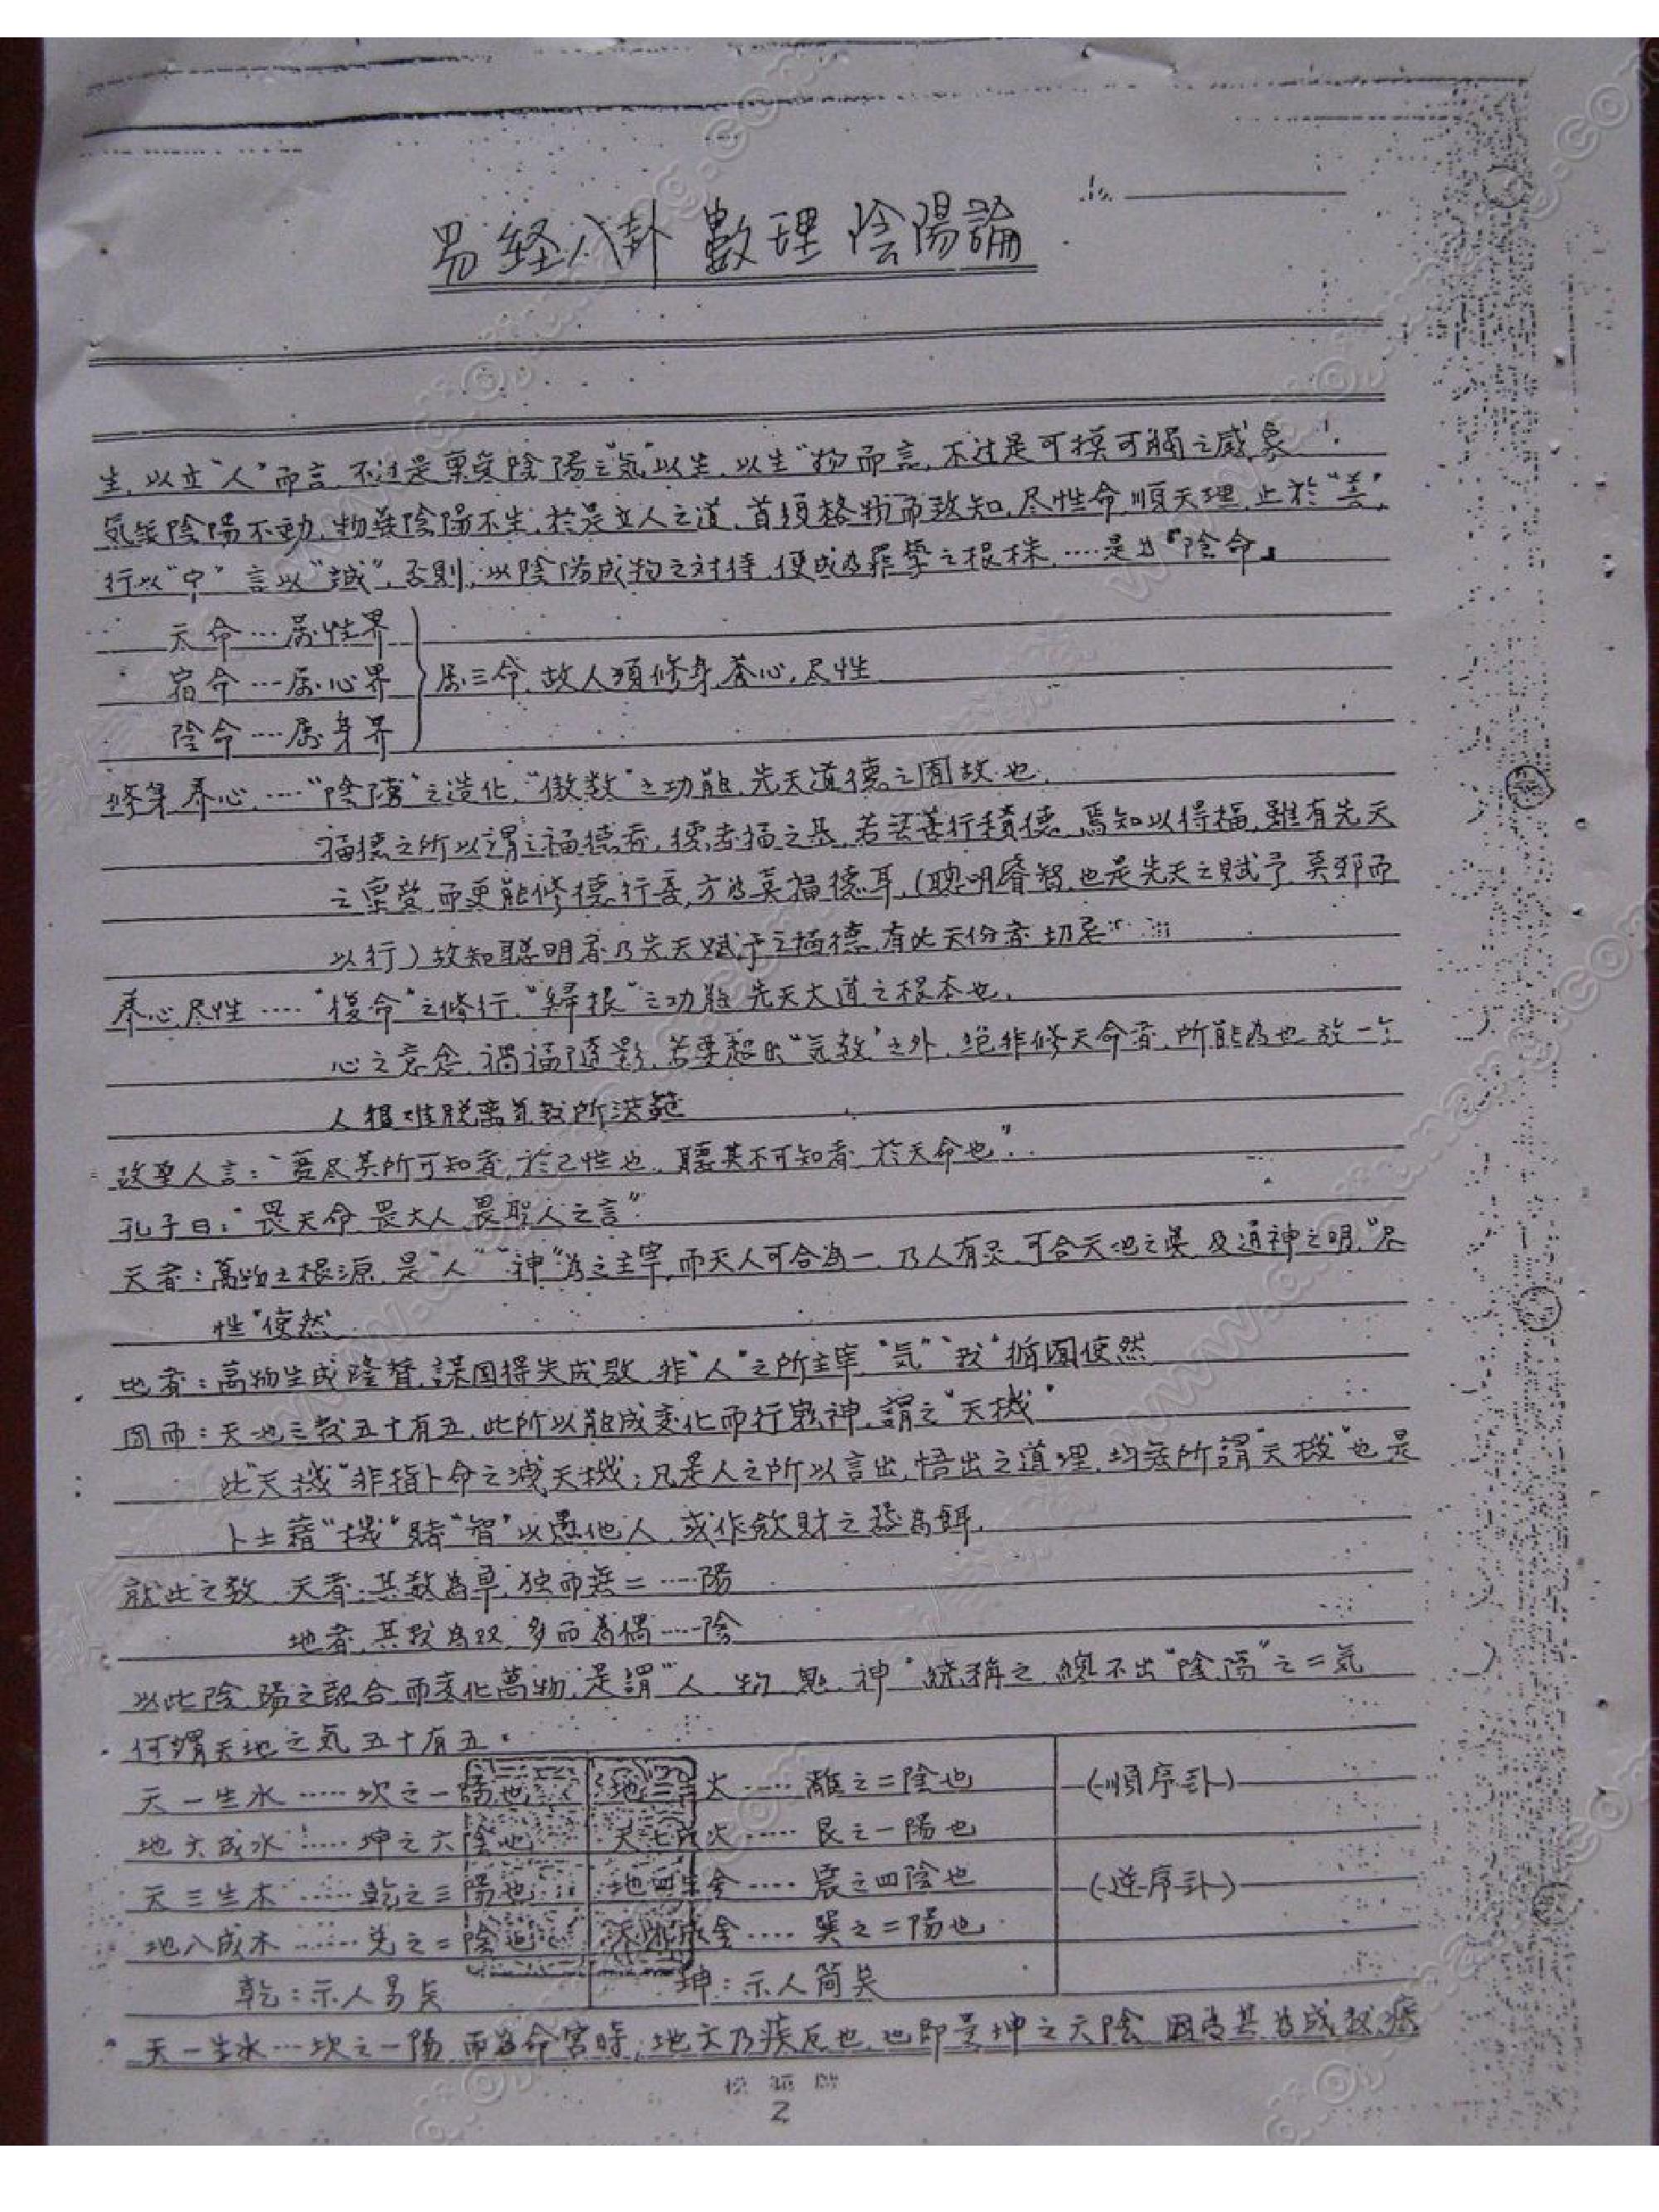 易経八卦 數理 陰陽論
生,以立"人"而言,不过是稟受陰陽之"気"以生,以生"物而言,不过是可摸可觸之感象
気無陰陽不動,物無陰陽不生,於是立人之道,首須格物而致知,尽性命,順天理,止於"善",
行以"中"言以"誠",否則,以陰陽成物之対待,便成為罪孽之根株,....是為『陰命』
天命....属性界
宿命....属心界
陰命....属身界
属三命,故人須修身,养心,尽性
修身养心....."陰隲"之造化,"倣数"之功能,先天道德之園故也,
福德之所以謂之福德者,德者福之基,若無善行積德,焉知以得福,雖有先天
之稟受,而更能修德行善,方為真福德耳,(聰明睿智,也是先天之賦予,莫邪而
以行)故知聰明者乃先天賦予之福德,有此天份者切忌
养心尽性....."復命"之修行,"歸根"之功能,先天大道之根本也,
心之意念,禍福隨影,若要超出"気数"之外,绝非修天命者,所能為也,故一个
人很难脱离気数所
故聖人言:"尽其所可知者,於己性也,聽其不可知者,於天命也"
孔子曰:"畏天命,畏大人,畏聖人之言"
天者:萬物之根源,是"人""神"為之主宰,而天人可合為一,乃人有灵,可合天地之,及通神之明,"尽
性"使然
地者:萬物生成隆替,謀图得失成敗,非"人"之所主宰,"気""数"循園使然
周而:天地之数五十有五,此所以能成变化而行鬼神,謂之"天機"
此"天機"非指卜命之洩天機;凡是人之所以言出,悟出之道理,均無所謂"天機"也是
卜士藉"機"賭"智"以愚他人,或作斂財之為餌,
就此之数,天者:其数為单,独而無二.....陽
地者,其数為双,多而為偶.....陰
以此陰陽之融合,而变化萬物,是謂"人,物,鬼,神"統稱之,總不出"陰陽"之二気
何謂天地之気五十有五.
天一生水.....坎之一陽也 地二生火.....離之二陰也 (順序卦)
地六成水.....坤之六陰也 天七成火.....艮之一陽也
天三生木.....乾之三陽也 地四生金.....震之四陰也 (逆序卦)
地八成木.....兌之二陰也 天九成金.....巽之二陽也
乾:示人易矣 坤:示人简矣
天一生水...坎之一陽,而為命宮時;地六乃疾厄也,也即是坤之六陰,因為其為成数,疾
2